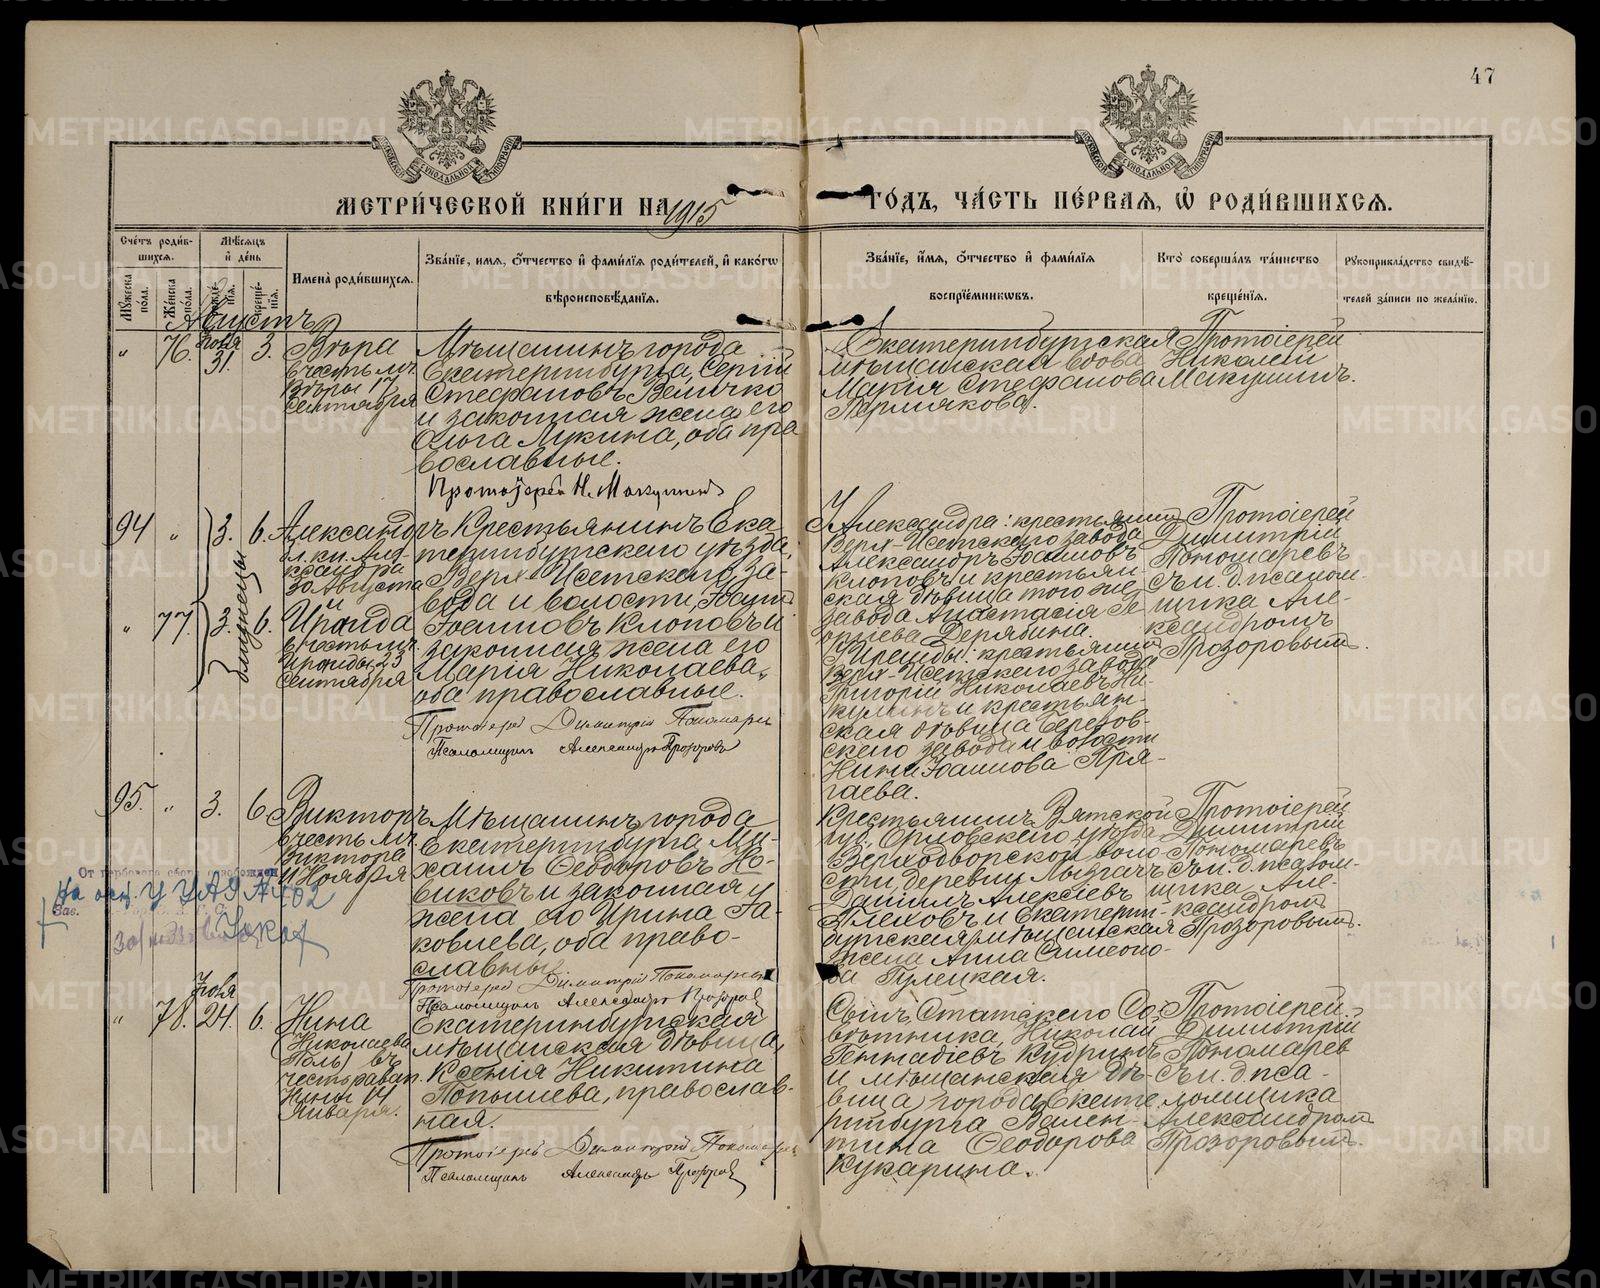 47
МЕТРИ́ЧЕСКОЙ КНИ́ГИ НА 1915 ГО́ДЪ, ЧА́СТЬ ПЕ́РВАѦ, Ѡ҆ РОДИ́ВШИХСѦ.
Сче́тъ роди́в-
шихсѧ.
Мѹ́жеска пола.
Же́нска пола.
Мѣ́сѧцъ
и҆ де́нь
рожде́нїѧ.
креще́нїѧ.
Имена̀ роди́вшихсѧ.
Зва́нїе, и҆мѧ, ѻ҆́тчество и҆ фами́лїѧ роди́телей, и҆ како́гѡ
вѣроисповѣ́данїѧ.
Зва́нїе, и҆мѧ, ѻ҆́тчество и҆ фами́лїѧ
воспрїе́мникѡвъ.
Кто̀ соверша́лъ та́инство
креще́нїѧ.
Рѹкоприкла́дство свидѣ́-
телей за́писи по жела́нїю.
Августъ
"
76.
Іюля
31.
3.
Вѣра
въ честь мч.
Вѣры 17
Сентября
Мѣщанинъ города
Екатеринбурга, Сергій
Стефановъ Величко
и законная жена его
Ольга Лукина, оба пра
вославные.
Протоіерей Н. Макушинъ
Екатеринбургская
мѣщанская вдова
Марія Стефанова
Пермякова.
Протоіерей
Николай
Макушинъ.
94
"
3.
6.
Александръ
бл. кн. Алек-
сандра
30 Августа
и
"
77.
3.
6.
близнецы
Ираида
въ честь мц.
Ираиды 23
Сентября
Крестьянинъ Ека
теринбургскаго уѣзда,
Верх-Исетскаго за-
вода и волости, Іоаннъ
Іоанновъ Клоповъ и
законная жена его
Марія Николаева,
оба православные.
Протоіерей Димитрій Пономаревъ
Псаломщикъ Александръ Прозоровъ
У Александра: крестьянинъ
Верх-Исетскаго завода
Александръ Іоанновъ
Клоповъ и крестьян-
ская дѣвица того же
завода Анастасія Ге-
оргіева Дерябина.
У Ираиды: крестьянинъ
Верх-Исетскаго завода
Григорій Николаевъ Ни-
кулинъ и крестьян-
ская дѣвица Березов-
скаго завода и волости
Нина Іоаннова Пря-
гаева.
Протоіерей
Димитрій
Пономаревъ
съ и. д. псалом-
щика Але-
ксандромъ
Прозоровымъ.
95.
"
3.
6
Викторъ
въ честь мч.
Виктора
11 Ноября
Мѣщанинъ города
Екатеринбурга Ми-
хаилъ Ѳеодоровъ Но-
виковъ и законная
жена его Ирина Іа-
ковлева, оба право-
славные.
Протоіерей Димитрій Пономаревъ
Псаломщикъ Александръ Прозоровъ
Крестьянинъ Вятской
губ., Орловскаго уѣзда
Верходворской воло-
сти, деревни
Даніилъ Алексіевъ
Плеховъ и Екатерин-
бургская мѣщанская
жена Анна Симеоно-
ва Гулецкая.
Протоіерей
Димитрій
Пономаревъ
съ и. д. псалом-
щика Але-
ксандромъ
Прозоровымъ.
От гербового сбора освобожден
Зав.
"
78.
Іюля
24.
6.
Нина
(Николаева
Поль) въ
честь равноап.
Нины 14
Января.
Екатеринбургская
мѣщанская дѣвица,
Ксенія Никитина
Попышева, православ-
ная.
Протоіерей Димитрій Пономаревъ
Псаломщикъ Александръ Прозоровъ
Сынъ Статскаго Со-
вѣтника, Николай
Геннадіевъ Кудринъ
и мѣщанская дѣ-
вица города Екате-
ринбурга Вален-
тина Ѳеодорова
Кукарина.
Протоіерей
Димитрій
Пономарев
съ и. д. пса-
ломщика
Александромъ
Прозоровымъ.
METRIKI.GASO-URAL.RU